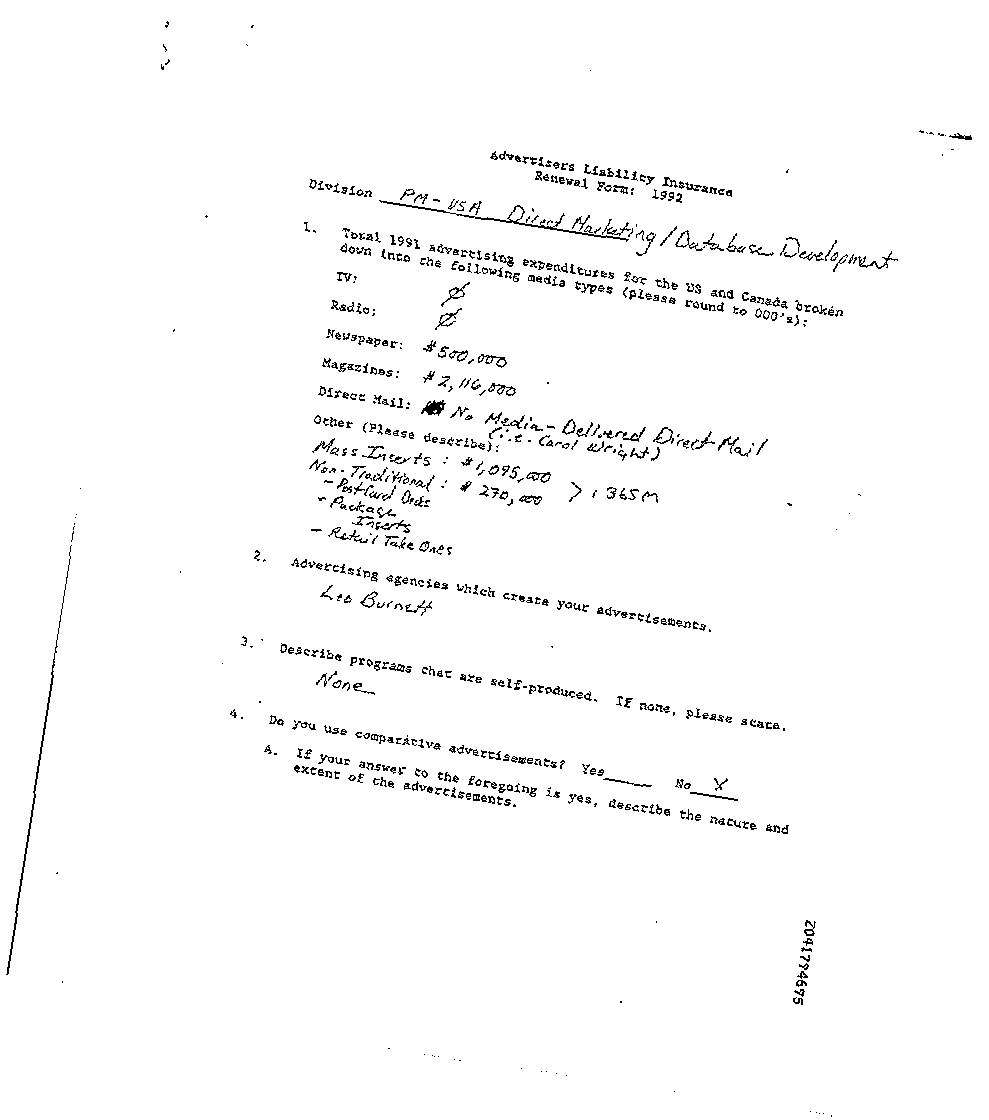 Advertisers Liability Insurance
Renewal Form: 1992
Division PM-USA Direct Marketing/Database Development
1. Total 1991 advertising expenditures for the US and Canada broken
down into the following media types (please round to 000's):
TV: Ø
Radio: Ø
Newspaper: $500,000
Magazines: $2,116,000
Direct Mail: No Media-Delivered Direct Mail
(i.e. Carol Wright)
Other (Please describe):
Mass Inserts : $1,095,000
Non-Traditional : $ 270,000 > 1365M
- PostCard Decks
- Package
Inserts
- Retail Take Ones
2. Advertising agencies which create your advertisements.
Leo Burnett
3. Describe programs that are self-produced. If none, please state.
None
4. Do you use comparative advertisements? Yes No X
A. If your answer to the foregoing is yes, describe the nature and
extent of the advertisements.
2041794695